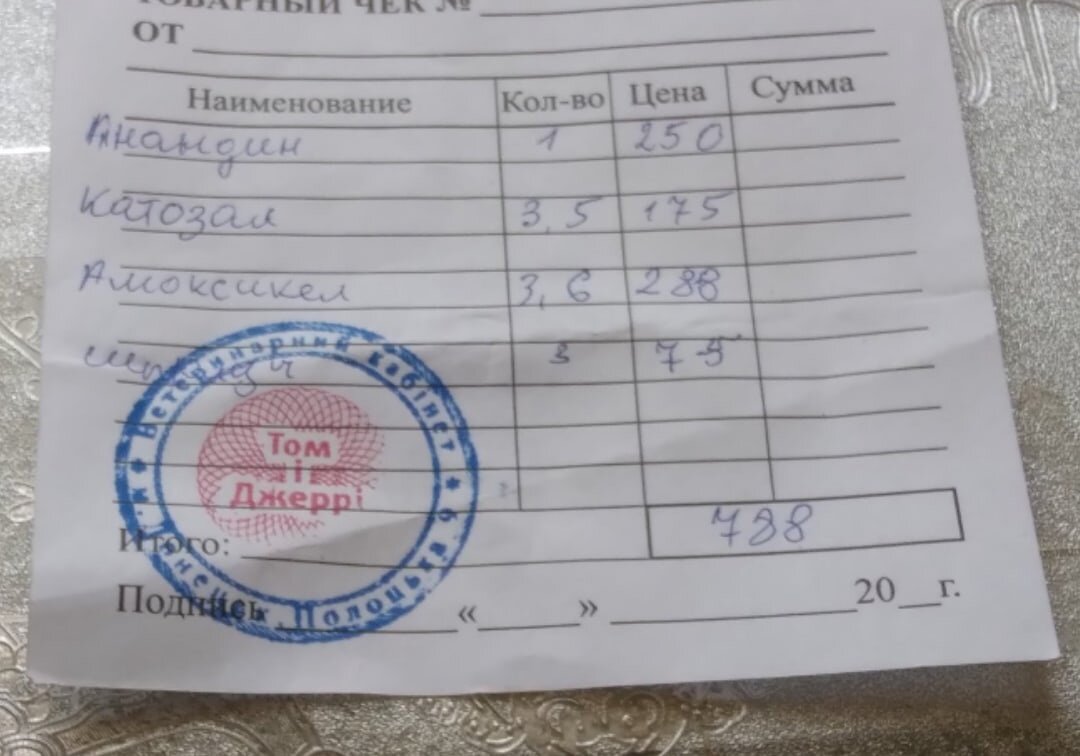 ТОВАРНЫЙ ЧЕК №
ОТ
Наименование Кол-во Цена Сумма
Анандин 1 250
Катозал 3,5 175
Амоксикел 3,6 288
3 75
Ветеринарний кабінет
Том
і
Джеррі
Итого: 788
Подпись « » 20 г.